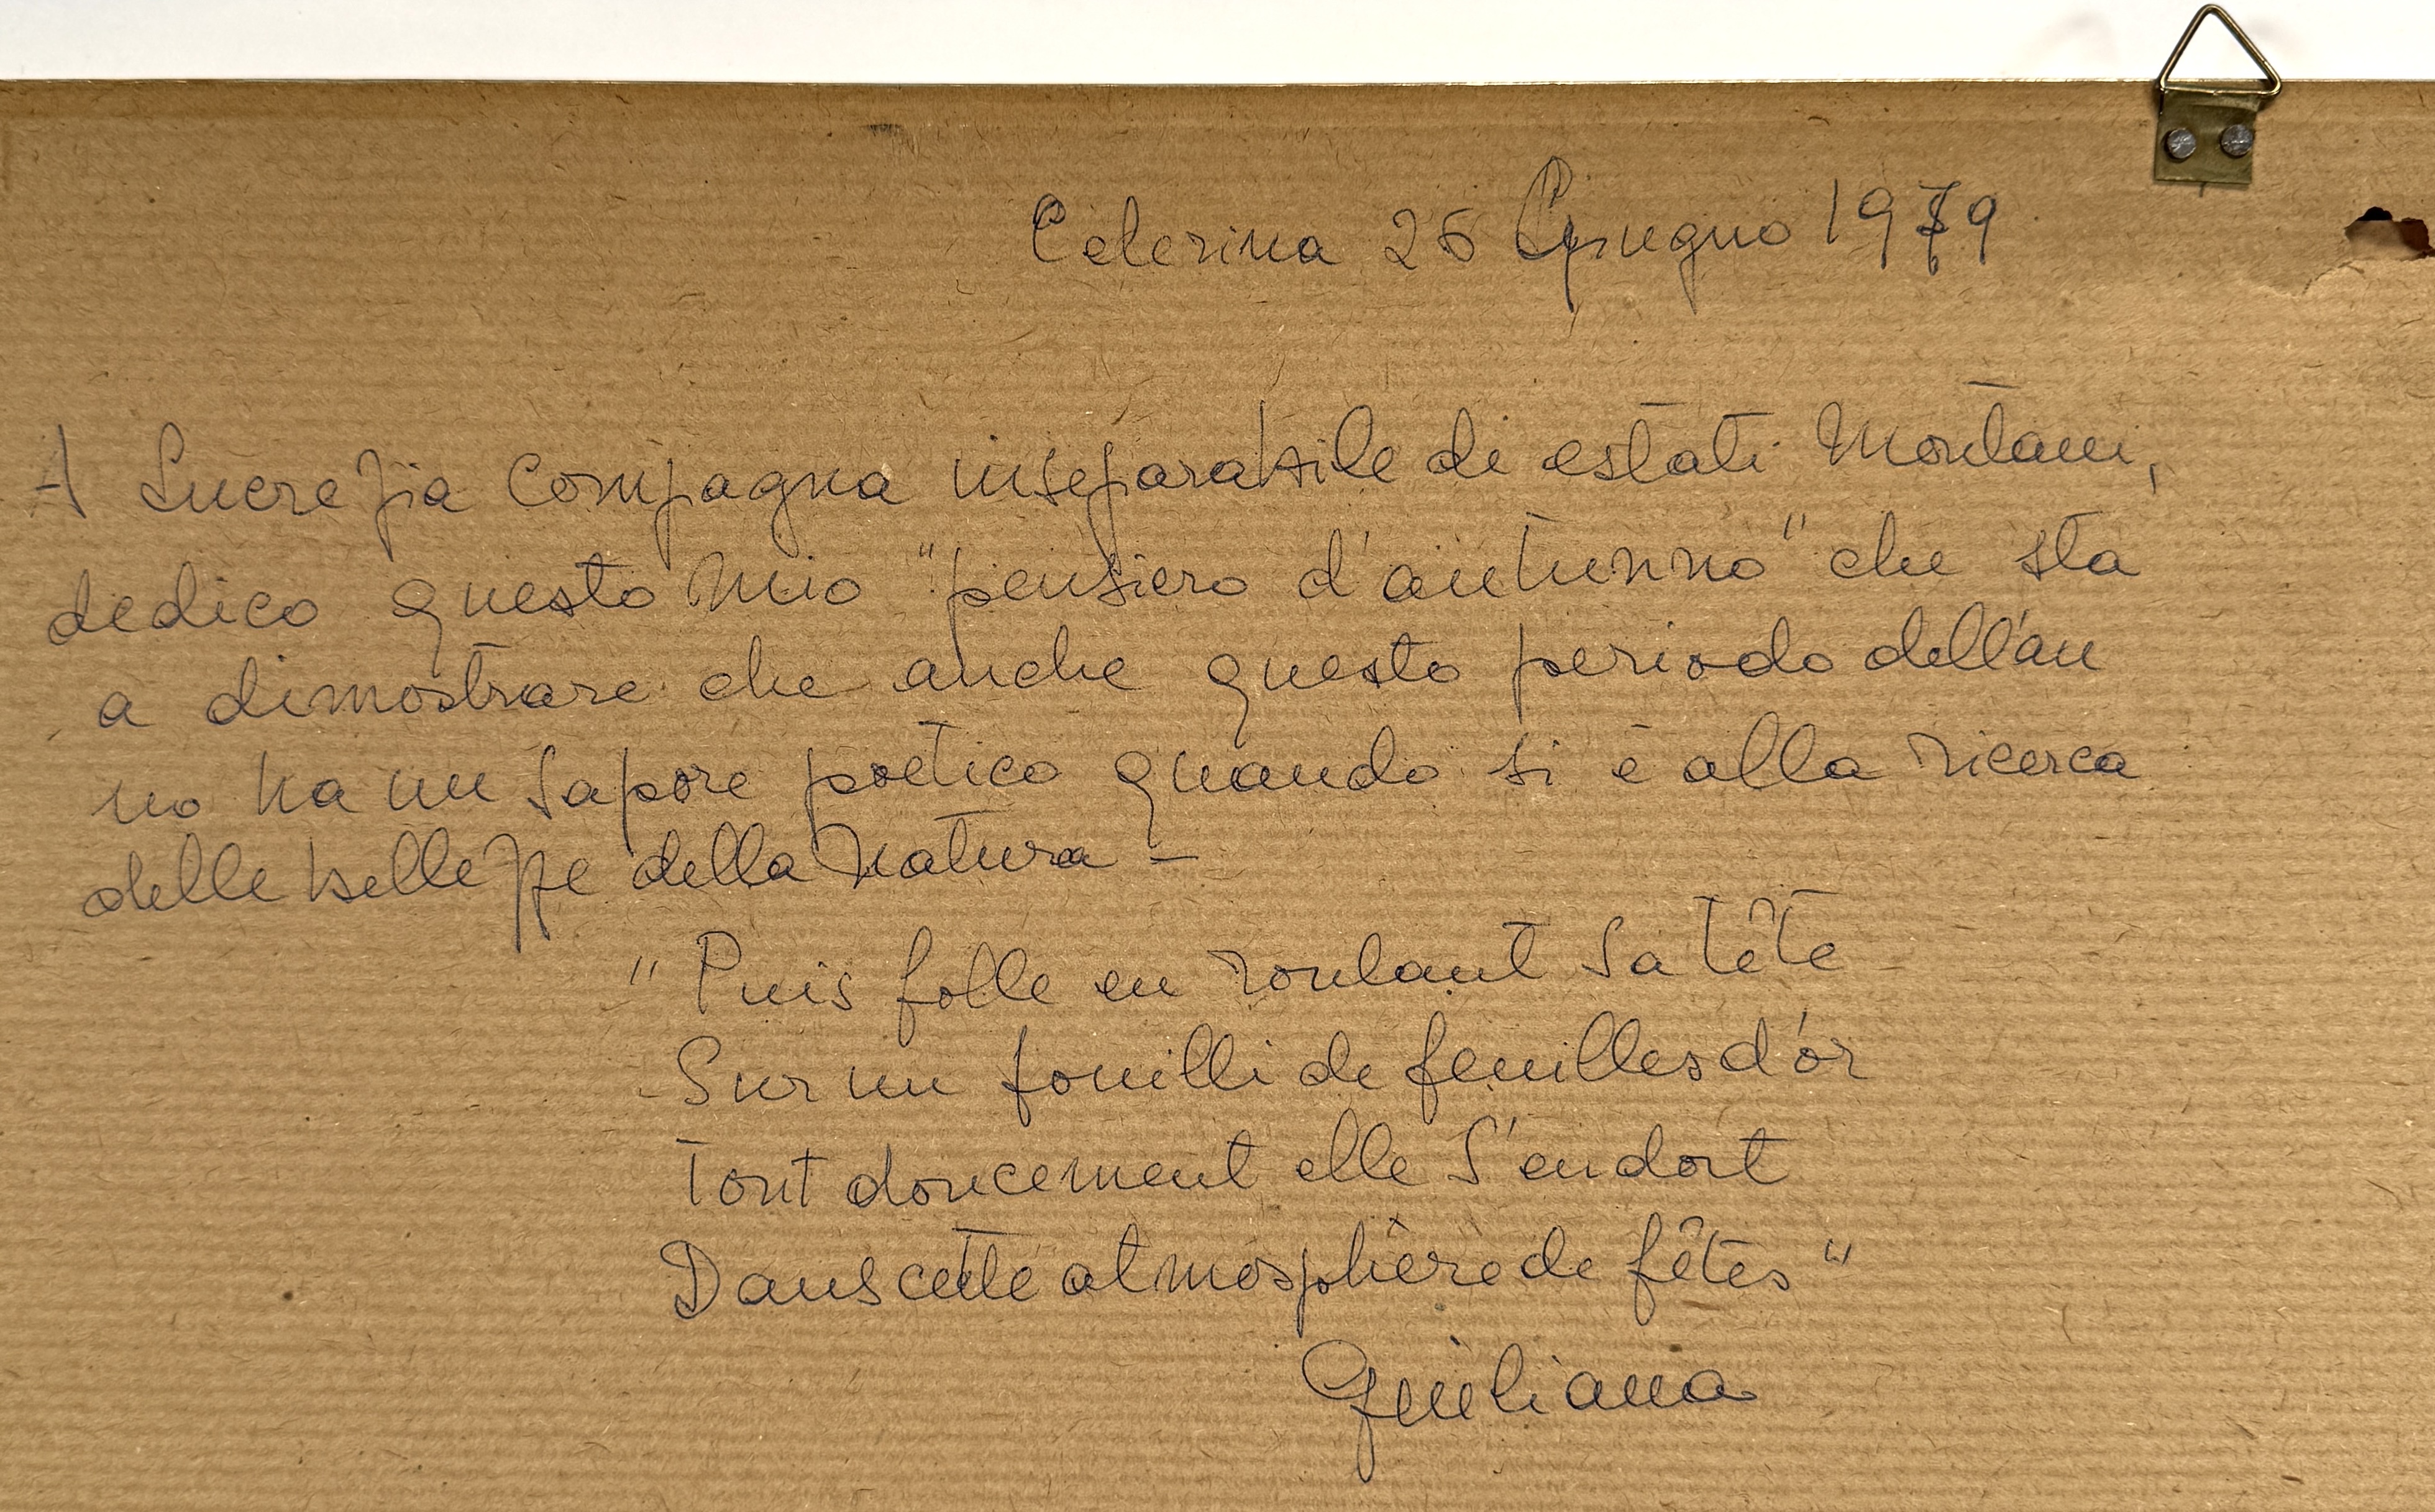 Celerina 26 Giugno 1979
A Lucrezia compagna inseparabile di estati Montani,
dedico questo mio "pensiero d'autunno" che sta
a dimostrare che anche questo periodo dell'an
no ha un sapore poetico quando si è alla ricerca
delle bellezze della natura -
"Puis folle en roulant sa tête
Sur un fouilli de feuilles d'or
Tout doucement elle s'endort
Dans cette atmosphère de fêtes"
Giuliana